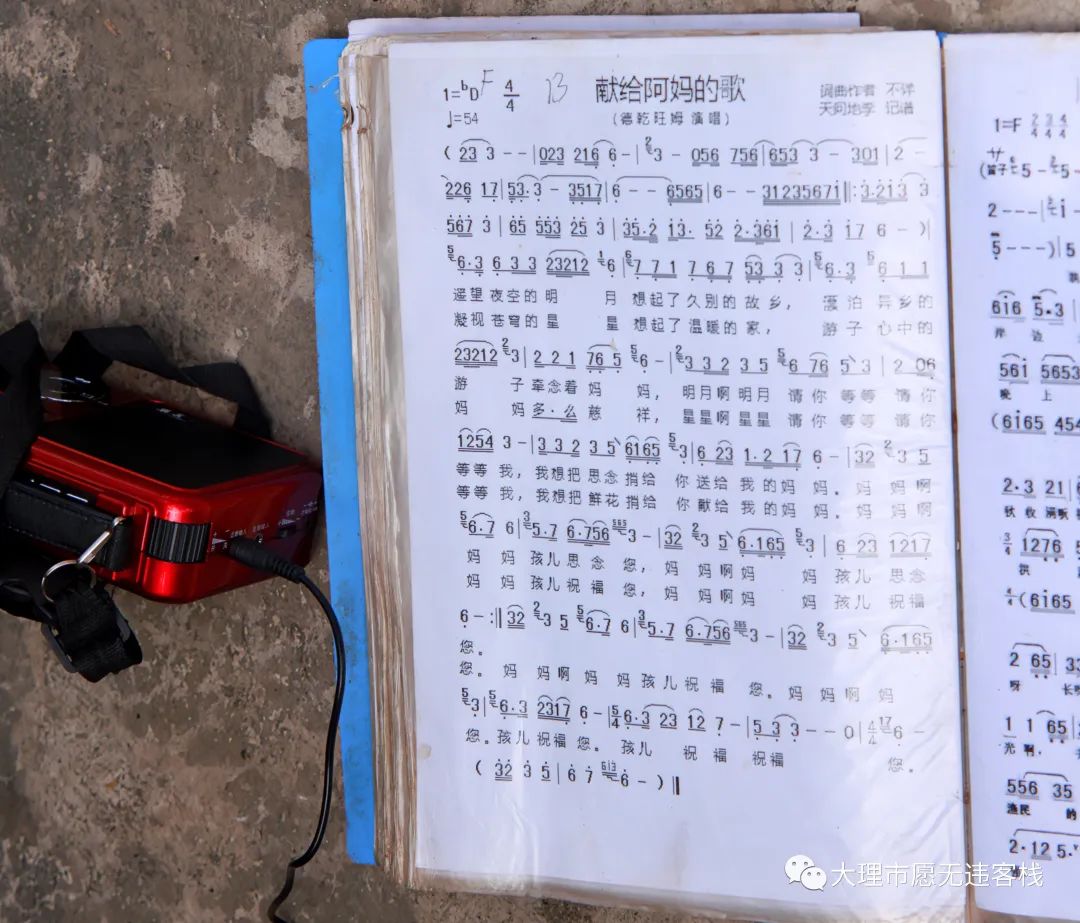 献给阿妈的歌
词曲作者 不详
1=ᵇD F 4/4 13
天问地孚 记谱
♩=54
(德乾旺姆演唱)
( 23 3 - - | 023 216 6 - | 3 - 056 756 | 653 3 - 301 | 2 -
226 17 | 53·3 - 3517 | 6 - - 6565 | 6 - - 31235671 ‖: 3·213 3
567 3 | 65 553 25 3 | 35·2 13· 52 2·361 | 2·3 17 6 - ) |
6·3 6 3 3 23212 6 | 7 7 1 7 6 7 53 3 3 | 6·3 6 1 1
遥望夜空的明 月 想起了久别的故乡， 漂泊异乡的
凝视苍穹的星 星 想起了温暖的家， 游子心中的
23212 3 | 2 2 1 76 5 6 - | 3 3 2 3 5 6 76 5 3 | 2 06
游 子牵念着妈 妈， 明月啊明月 请你等等 请你
妈 妈多·么慈 祥， 星星啊星星 请你等等 请你
1254 3 - | 3 3 2 3 5 6165 3 | 6 23 1·2 17 6 - | 32 3 5
等等我，我想把思念捎给 你送给我的妈妈。妈妈啊
等等我，我想把鲜花捎给 你献给我的妈妈。妈妈啊
6·7 6 | 5·7 6·756 3 - | 32 3 5 6·165 3 | 6 23 1217
妈妈孩儿思念您，妈妈啊妈 妈孩儿思念
妈妈孩儿祝福您，妈妈啊妈 妈孩儿祝福
6 - :‖ 32 3 5 6·7 6 | 5·7 6·756 3 - | 32 3 5 6·165
您。
您。妈妈啊妈妈孩儿祝福 您。妈妈啊妈
3 | 6·3 2317 6 - | 5/4 6·3 23 12 7 - | 5 3 3 - - 0 | 4/4 6 -
您。孩儿祝福您。孩儿 祝福祝福 您。
( 32 3 5 | 6 7 6 - ) ‖
1=F 2/4 3/4 4/4
2 - - - |
5 - - - ) | 5
616 5·3 |
岸边
561 5653
晚上
(6165 454
2·3 21 |
3/4 1276
4/4 (6165
2 65 |
呀 长
1 1 65 |
光啊，
556 35
渔民 的
2·12 5·
大理市愿无违客栈